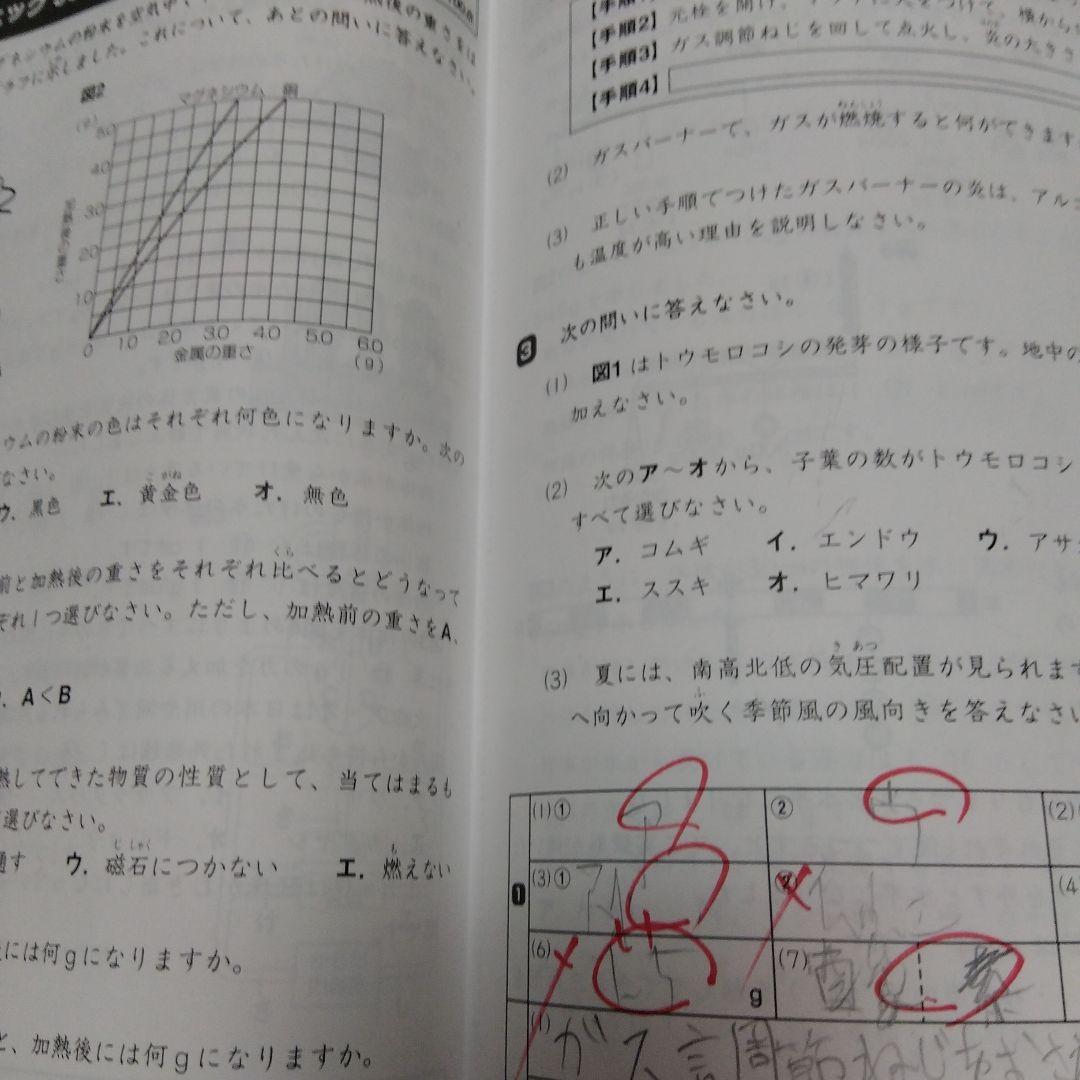 グネシウムの粉末を空気中で
後の重さをは
グラフに示しました。これについて、あとの問いに答えなさい。
図2
マグネシウム 銅
(g)
5.0
4.0
3.0
2.0
1.0
0 1.0 2.0 3.0 4.0 5.0 6.0
金属の重さ (g)
ウムの粉末の色はそれぞれ何色になりますか。次の
なさい。
ウ. 黒色 エ. 黄金色 オ. 無色
こがね
前と加熱後の重さをそれぞれ比べるとどうなって
くら
ぞれ1つ選びなさい。ただし、加熱前の重さをA、
A<B
熱してできた物質の性質として、当てはまるも
選びなさい。
通す ウ. 磁石につかない エ. 燃えない
じしゃく
も
には何gになりますか。
と、加熱後には何gになりますか。
【手順2】 元栓を開け、
【手順3】 ガス調節ねじを回して点火し、炎の大きさ
【手順4】
(2) ガスバーナーで、ガスが燃焼すると何ができます
ねんしょう
(3) 正しい手順でつけたガスバーナーの炎は、アルコ
も温度が高い理由を説明しなさい。
3 次の問いに答えなさい。
(1) 図1はトウモロコシの発芽の様子です。地中の
加えなさい。
(2) 次のア～オから、子葉の数がトウモロコシ
すべて選びなさい。
ア. コムギ イ. エンドウ ウ. アサ
エ. ススキ オ. ヒマワリ
(3) 夏には、南高北低の気圧配置が見られます
きあつ
へ向かって吹く季節風の風向きを答えなさい
ふ
1
(1)① ② (2)
(3)① ② (4
(6) g (7)
(1)
ガス調節ねじ